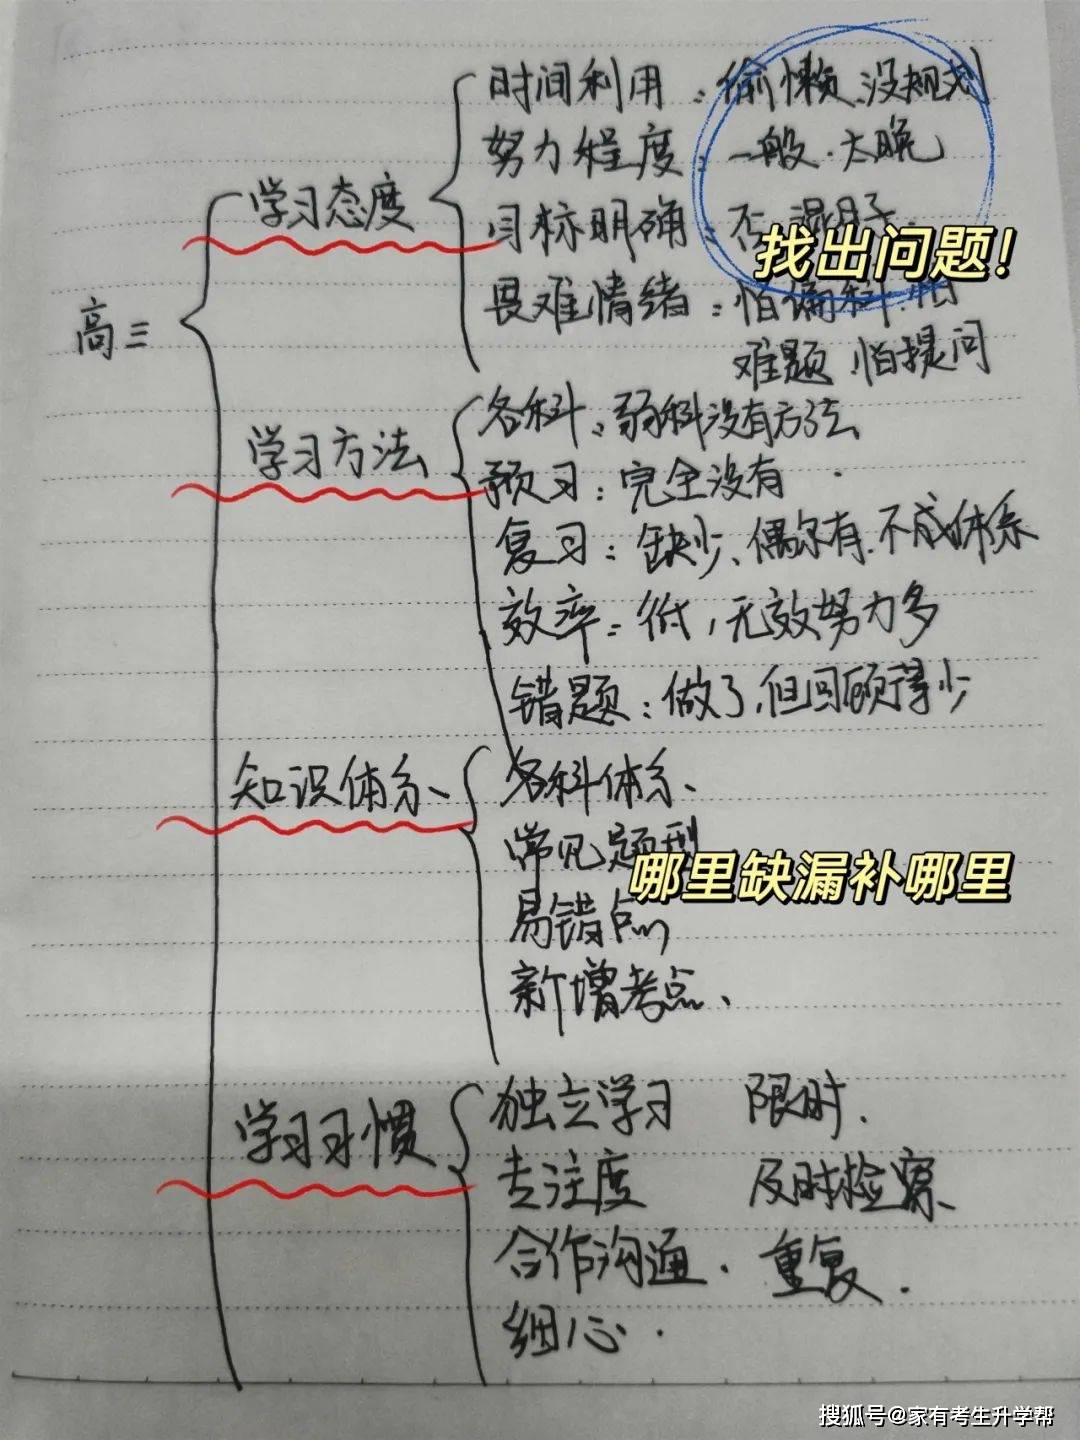 高三
学习态度
时间利用：偷懒、没规划
努力程度：一般、太晚
目标明确：否、混日子.
找出问题！
畏难情绪：怕偏科、怕
难题、怕提问
学习方法
各科：弱科没有方法
预习：完全没有
复习：缺少、偶尔有、不成体系
效率：低，无效努力多
错题：做了，但回顾得少
知识体系、
各科体系、
常见题型
哪里缺漏补哪里
易错点、
新增考点、
学习习惯
独立学习 限时.
专注度 及时检察、
合作沟通. 重复.
细心.
搜狐号@家有考生升学帮